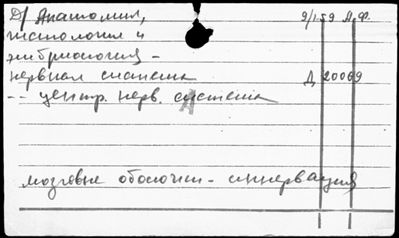 Д/ Анатомия, 9/I-59 А.Ф.
гистология и
эмбриология -
нервная система Д 20069
-- центр. нерв. система
мозговые оболочки - иннервация